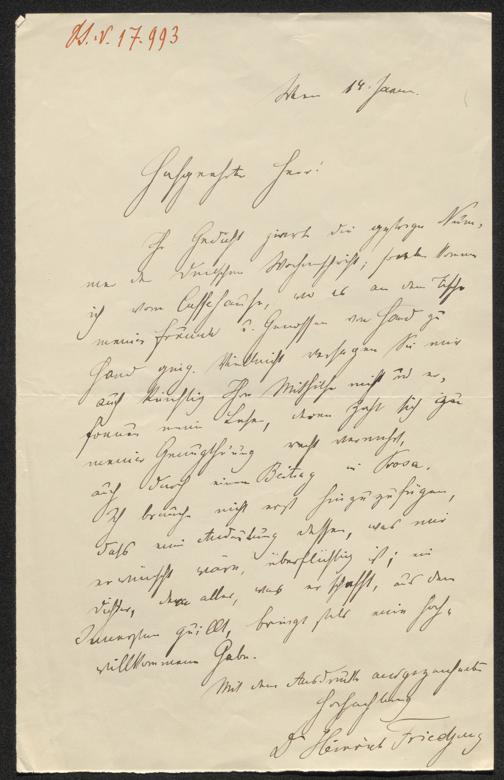 H.I.N. 17.993
Wien 14. Jänn.
Hochgeehrter Herr!
Ihr Gedicht zierte die gestrige Num-
mer der Deutschen Wochenschrift; soeben komme
ich vom Caffehause, wo es an dem Tische
meiner Freunde u. Genossen von Hand zu
Hand ging. Vielleicht versagen Sie mir
auch künftig Ihre Mithilfe nicht und er-
freuen meine Leser, deren Zahl sich zu
meiner Genugthuung recht vermehrt,
auch durch einen Beitrag in Prosa.
Ich brauche nicht erst hinzuzufügen,
daß eine Andeutung dessen, was mir
erwünscht wäre, überflüssig ist; ein
Dichter, dem alles, was er schafft, aus dem
Innersten quillt, bringt stets eine hoch-
willkommene Gabe.
Mit dem Ausdrucke ausgezeichneter
Hochachtung
Dr Heinrich Friedjung